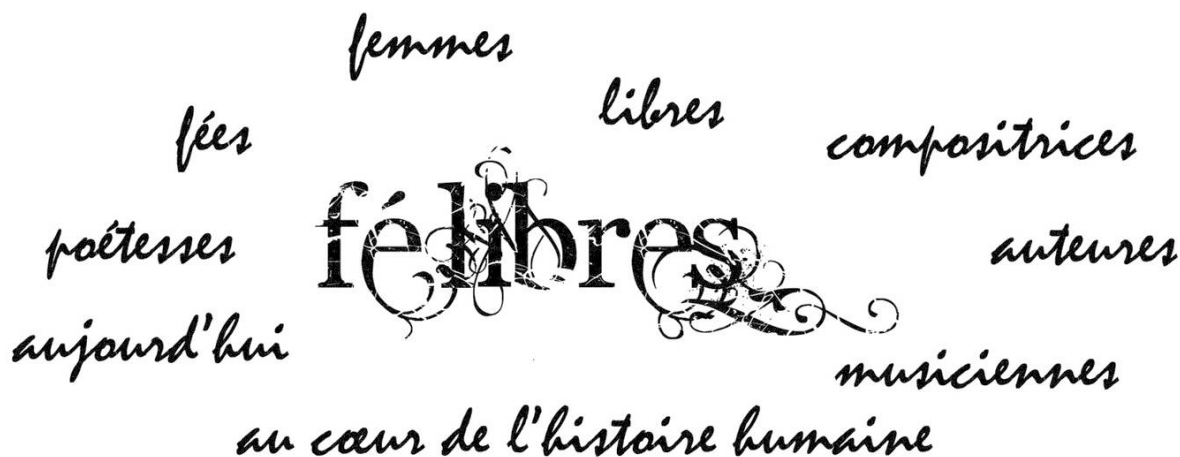 femmes
libres
fées
compositrices
félibres
poétesses
auteures
aujourd'hui
musiciennes
au cœur de l'histoire humaine